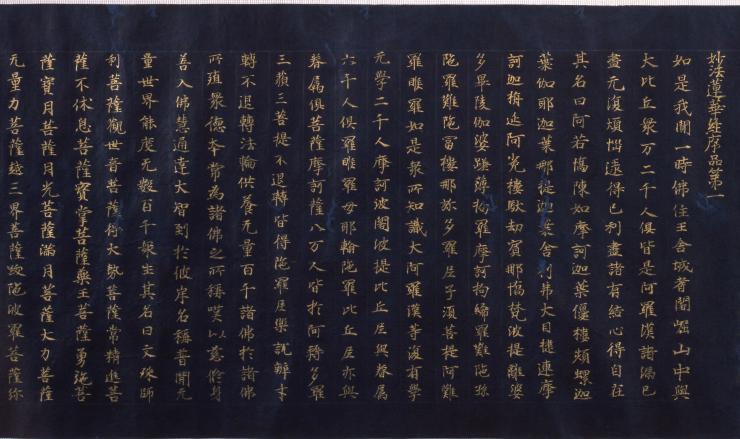 妙法蓮華經序品第一
如是我聞一時佛住王舍城耆闍崛山中與
大比丘衆万二千人俱皆是阿羅漢諸漏已
盡无復煩惱逮得己利盡諸有結心得自在
其名曰阿若憍陳如摩訶迦葉優樓頻螺迦
葉伽耶迦葉那提迦葉舍利弗大目揵連摩
訶迦栴延阿㝹樓馱劫賓那憍梵波提離婆
多畢陵伽婆蹉薄拘羅摩訶拘絺羅難陀孫
陀羅難陀富樓那弥多羅尼子須菩提阿難
羅睺羅如是衆所知識大阿羅漢等復有學
无學二千人摩訶波闍波提比丘尼與眷属
六千人俱羅睺羅母耶輸陀羅比丘尼亦與
眷属俱菩薩摩訶薩八万人皆於阿耨多羅
三藐三菩提不退轉皆得陀羅尼樂說辯才
轉不退轉法輪供養无量百千諸佛於諸佛
所殖衆德本常為諸佛之所稱嘆以慈修身
善入佛慧通達大智到於彼岸名稱普聞无
量世界能度无數百千衆生其名曰文殊師
利菩薩觀世音菩薩得大勢菩薩常精進菩
薩不休息菩薩寶掌菩薩藥王菩薩勇施菩
薩寶月菩薩月光菩薩滿月菩薩大力菩薩
无量力菩薩越三界菩薩跋陀波羅菩薩弥